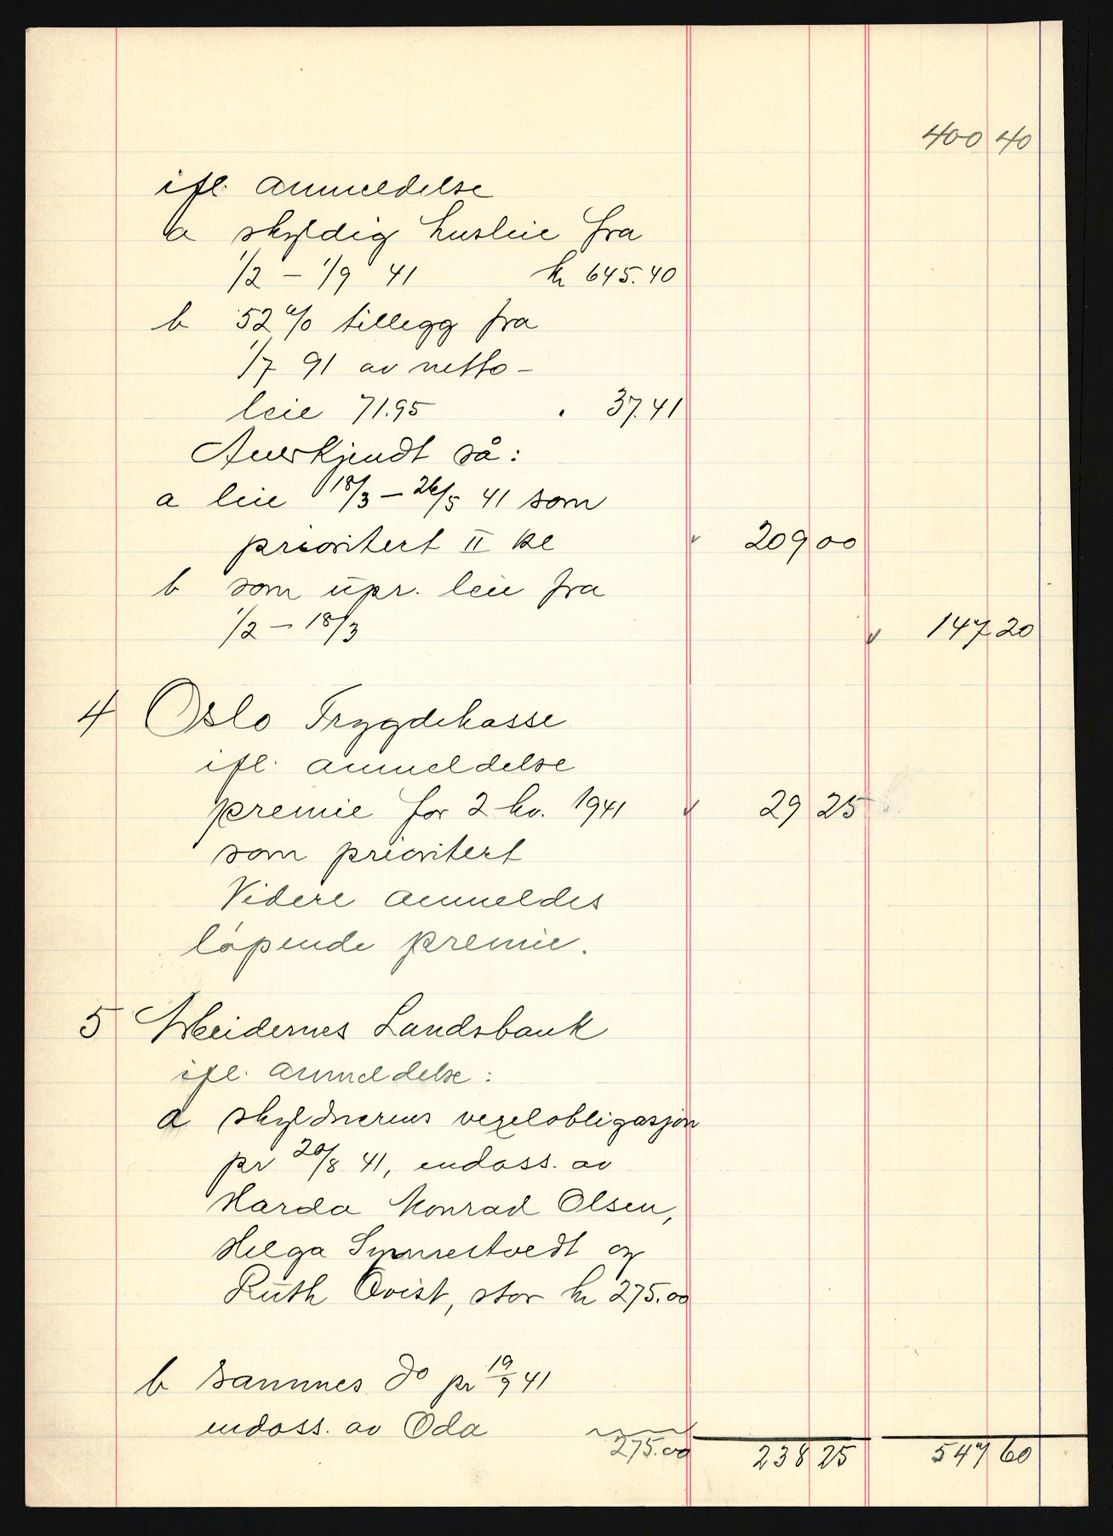 400 40
ifl. anmeldelse
a skyldig husleie fra
1/2 – 1/9 41 kr 645.40
b 52 % tillegg fra
1/7 91 av netto-
leie 71.95 " 37.41
Anerkjendt så:
a leie 18/3 – 26/5 41 som
prioritert II kl 209 00
b som upr. leie fra
1/2 – 18/3 147 20
4 Oslo Trygdekasse
ifl. anmeldelse
premie for 2 kv. 1941 29 25
som prioritert
Videre anmeldes
löpende premie.
5 Arbeidernes Landsbank
ifl. anmeldelse:
a skyldnerens vexelobligasjon
pr 20/8 41, endoss. av
Harda Konrad Olsen,
Helga Synnestvedt og
Ruth Qvist, stor kr 275.00
b Sammes do pr 19/9 41
endoss. av Oda
275.00 238 25 547 60